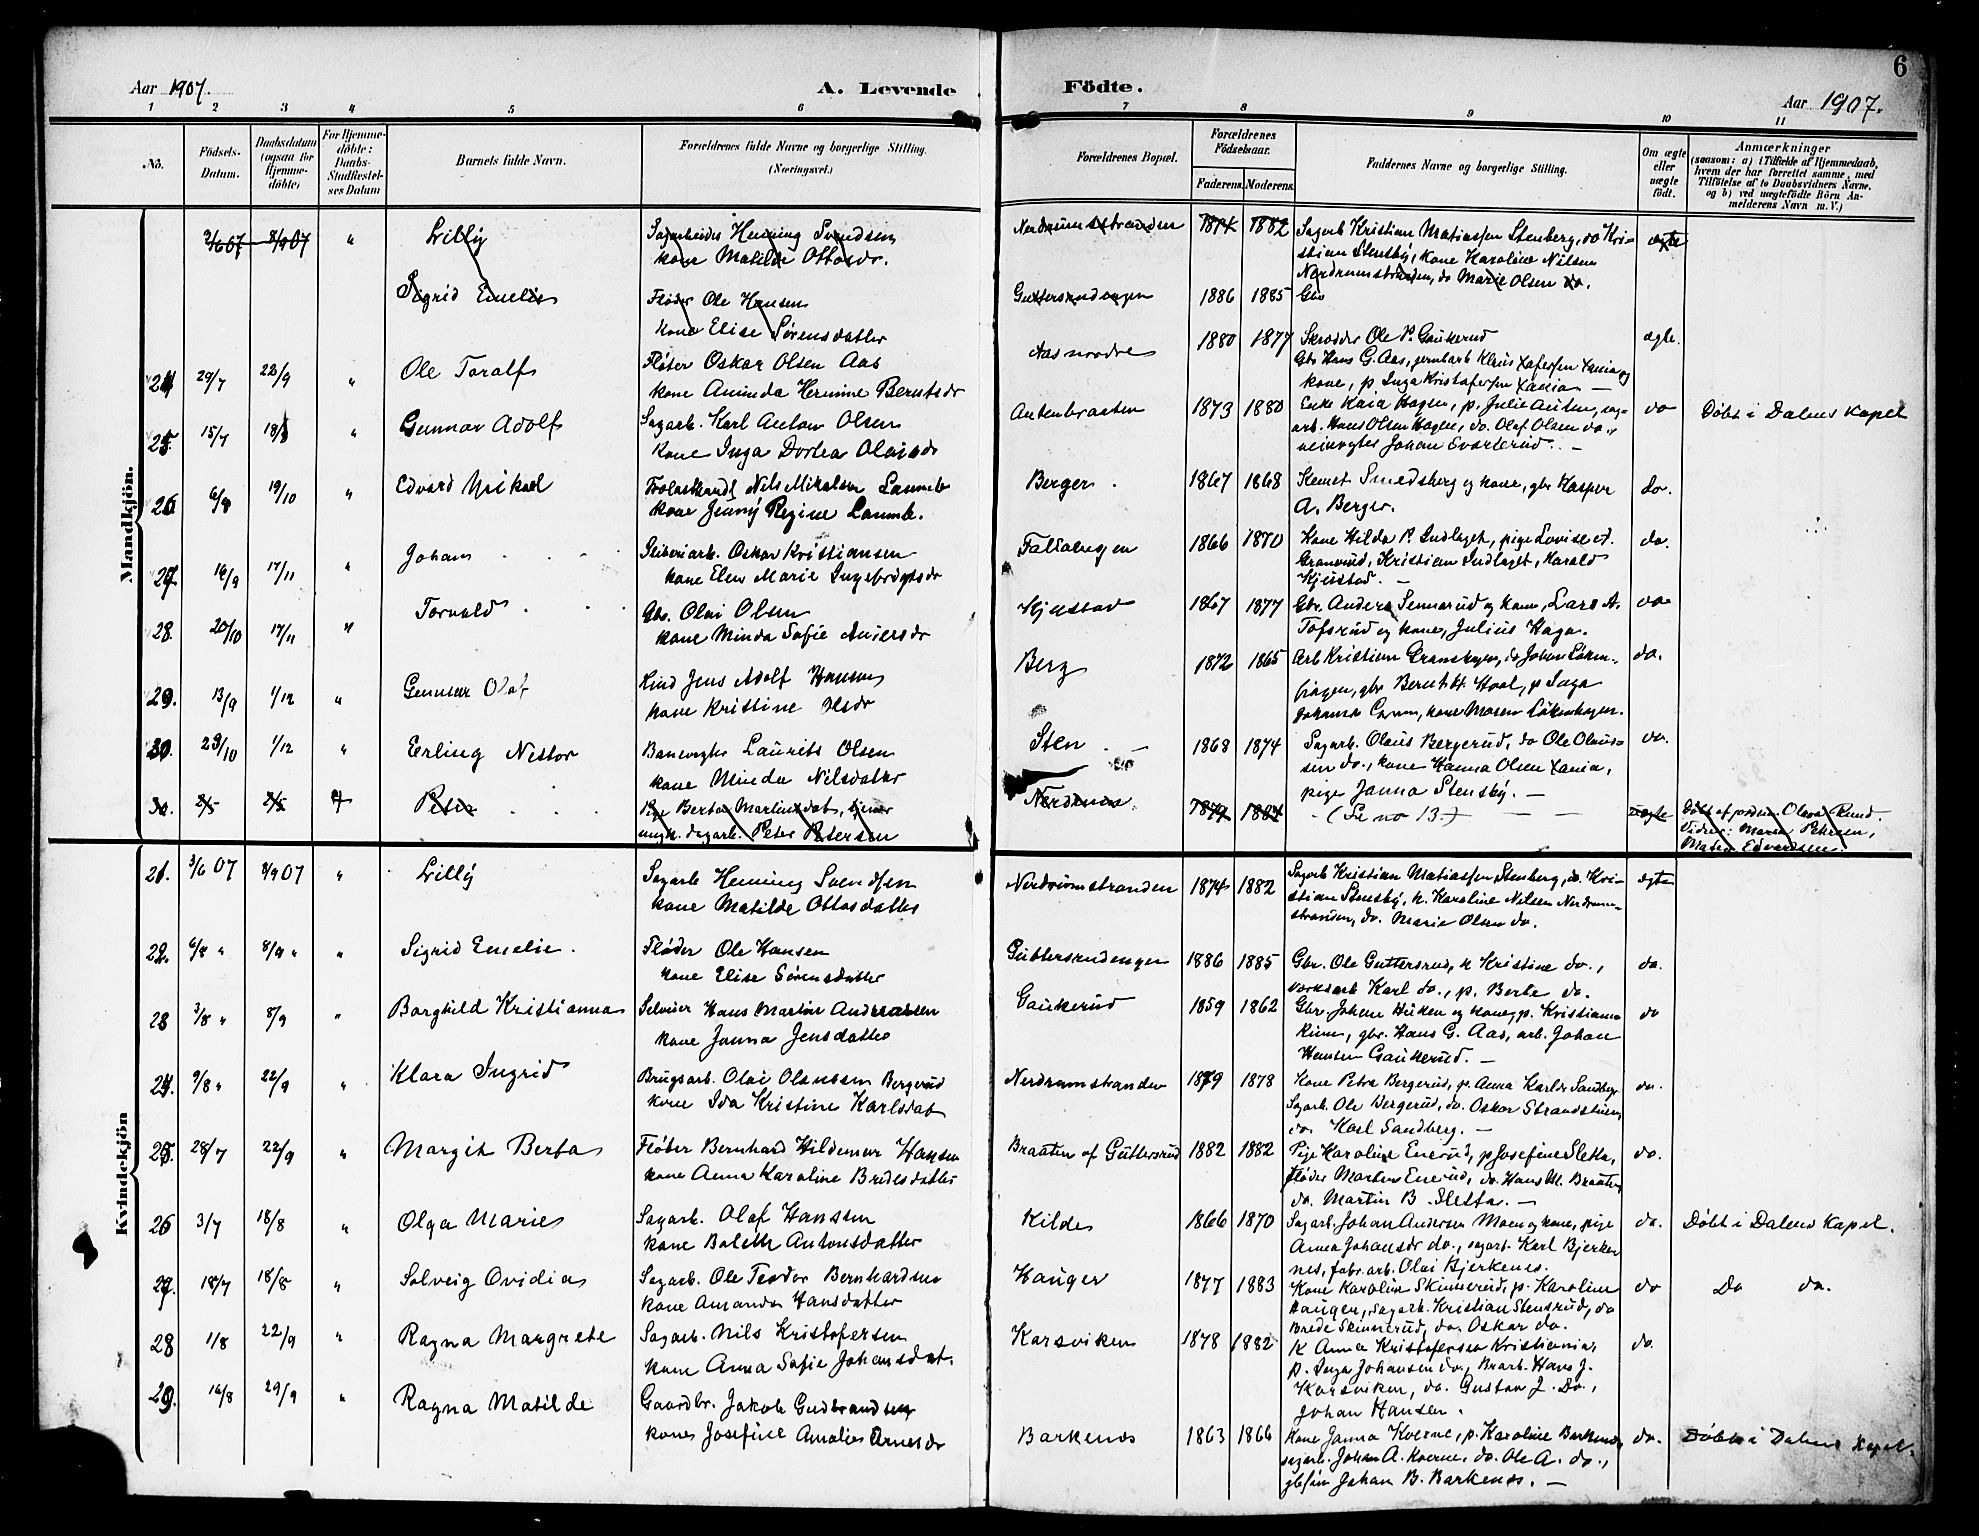 6
Aar 1907.
A. Levende
Födte.
Aar 1907.
1 2 3 4 5 6 7 8 9 10 11
No.
Födsels-
Datum.
Daabsdatum
(ogsaa for
Hjemme-
döbte)
For Hjemme-
döbte:
Daabs-
Stadfæstel-
ses Datum
Barnets fulde Navn.
Forældrenes fulde Navne og borgerlige Stilling.
(Næringsvei.)
Forældrenes Bopæl.
Forældrenes
Födselsaar.
Faderens.
Moderens.
Faddernes Navne og borgerlige Stilling.
Om ægte
eller
uægte
födt.
Anmærkninger
(saasom: a) i Tilfælde af Hjemmedaab,
hvem der har forrettet samme, med
Tilföielse af to Daabsvidners Navne.
og b) ved uægtefödte Börn An-
melderens Navn m. V.)
Mandkjön.
3/6 07 8/9 07 " Lilly
Sagarbeider Henning Svendsen
kone Matilde Ottosdr.
Nerdrumstranden 1874 1882
Sagarb Kristian Matiassen Stenberg, do Kri-
stian Stensby, kone Karoline Nilsen
Nerdrumstranden, do Marie Olsen do.
ægte
Sigrid Emelie
Fløder Ole Hansen
kone Elise Sørensdatter
Guttersrudengen 1886 1885 Gbr
24 29/7 22/9 " Ole Toralf
Fløter Oskar Olsen Aas
kone Aminda Hermine Berntsdr
Aas nordre 1880 1877
Skrædder Ole P. Gaukerud
Gbr Hans G. Aas, jernbarb Klaus Xafersen Xania og
kone, p. Inga Kristofersen Xania —
ægte.
25. 15/7 18/8 " Gunnar Adolf
Sagarb. Karl Anton Olsen
kone Inga Dortea Olaisdr
Antenbraaten 1873 1880
Enke Kaia Hagen, p. Julie Auten, sag-
arb. Hans Olsen Hagen, do. Olaf Olsen do.,
Johan
do
Døbt i Dalens Kapel
26 6/8 19/10 " Edvard Mikael
Nils Mikalsen
kone Jenny Regine
Berger. 1867 1868
Smedsberg og kone, gbr Kasper
A. Berger.
do.
27. 16/9 17/11 " Johan
Sliberiarb. Oskar Kristiansen
kone Elen Marie Ingebrigtsdr
1866 1870
Kone Hilda P. Indlaget, pige Lovise
Granerud, Kristian Indlaget, Harald
Kjustad. —
do.
28. 20/10 17/11 " Torvald
Gbr. Olai Olsen
kone Minda Sofie Andersdr
Kjustad 1867 1877
Gbr. Anders Sennerud og kone, Lars A.
Tofsrud og kone, Julius Haga.
do
29. 13/9 1/12 " Gunnar Olaf
Jens Adolf Hansen
kone Kristine Olsdr
Berg 1872 1865
Arb Kristian Granshagen, do Johan Løken-
hagen, gbr Bernt H. Hval, p Inga
kone Maren Løkenhagen.
do.
30. 29/10 1/12 " Erling Nestor
Banevogter Laurits Olsen
kone Minda Nilsdatter
Sten 1868 1874
Sagarb. Olaus Bergerud, do Ole Olaus-
sen do., kone Hanna Olsen Xania,
pige Janna Stensby. —
do.
30. 2/5 2/5 Peter
Pige Berta Martinsdat, tjener
ungk. sagarb. Peter Petersen
Nerdenes 1877 1884
(Se no 13)
uægte
Døbt af jordm. Olava Rund.
Vidner: Maren Petersen,
Maten Edvardsen.
Kvindekjön
21. 3/6 07 8/9 07 " Lilly
Sagarb Henning Svendsen
kone Matilde Ottosdatter
Nerdrumstranden 1874 1882
Sagarb Kristian Matiassen Stenberg, do. Kri-
stian Stensby, k. Karoline Nilsen Nerdrum-
stranden, do. Marie Olsen do.
ægte
22. 6/8 " 8/9 " " Sigrid Emelie.
Fløder Ole Hansen
kone Elise Sørensdatter
Guttersrudengen 1886 1885
Gbr. Ole Guttersrud, k Kristine do.,
Karl do., p. Berte do.
do.
23 3/8 " 8/9 " Borghild Kristianna
Selveier Hans Martin Andreassen
kone Janna Jensdatter
Gaukerud 1859 1862
Gbr. Johan Huken og kone, p. Kristianna
Riim, gbr. Hans G. Aas, arb. Johan
Hansen Gaukerud. —
do
24. 9/8 " 22/9 " Klara Ingrid
Brugsarb. Olai Olaussen Bergerud
kone Ida Kristine Karlsdat
Nerdrumstranden 1879 1878
Kone Petra Bergerud, p. Anna Karlsdr Sandberg
Sagarb. Ole Bergerud, do. Oskar Strandstuen,
do. Karl Sandberg. —
do.
25. 28/7 22/9 " Margit Berta
Fløter Bernhard Hildemar Hansen
kone Anna Karoline Bredesdatter
Braaten af Guttersrud 1882 1882
Pige Karoline Enerud, p Josefine Sletta,
fløder Morten Enerud, do. Hans M. Braaten,
do. Martin B. Sletta. —
do.
26 3/7 18/8 " Olga Marie
Sagarb. Olaf Hanssen
kone Bolette Antonsdatter
Kilde 1866 1870
Sagarb. Johan Andersen Moen og kone, pige
Anna Johansdr do., sagarb. Karl Bjerke-
nes, fabr. arb. Olai Bjerkenes.
do.
Døbt i Dalens Kapel.
27. 18/7 18/8 " Solveig Ovidia
Sagarb. Ole Teodor Bernhardsen
kone Amanda Hansdatter
Hauger 1877 1883
Kone Karoline Skinnerud, p. Karoline
Hauger, sagarb. Kristian Stensrud, do
Brede Skinnerud, do. Oskar do.
do
Do do.
28 1/8 22/9 " Ragna Margrete
Sagarb. Nils Kristofersen
kone Anna Sofie Johansdat.
Karsviken 1878 1882
K Anna Kristofersen Kristiania,
p. Inga Johansen do., Brarb. Hans J.
Karsviken, do. Gustav J. Do.,
Johan Hansen.
do.
29. 16/8 29/9 " Ragna Matilde
Gaardbr. Jakob Gudbrandsen
kone Josefine Amalie Arnesdr
Barkenes 1863 1866
Kone Janna Kverne, p. Karoline Barkenes,
sagarb. Johan A. Kverne, do. Ole A. do.,
gbsøn Johan B. Barkenes. —
do.
Døbt i Dalens Kapel.